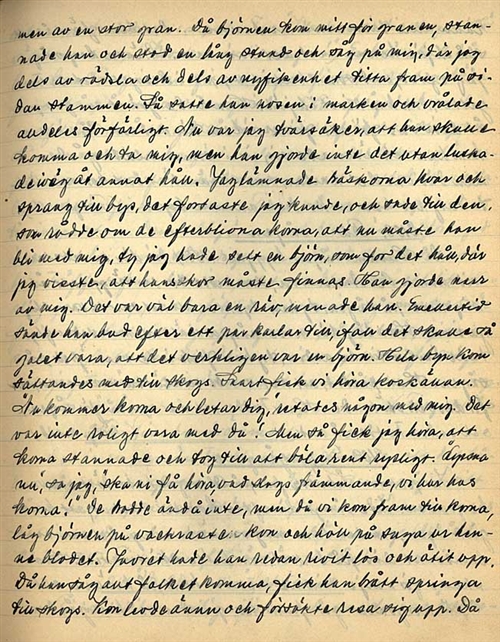 men av en stor gran. Då björnen kom mitt för granen, stan-
nade han och stod en lång stund och såg på mig, där jag
dels av rädsla och dels av nyfikenhet titta fram på si-
dan stammen. Så satte han nosen i marken och vrålade
alldeles förfärligt. Nu var jag tvärsäker, att han skulle
komma och ta mig, men han gjorde inte det utan luska-
de iväg åt annat håll. Jag lämnade kvar och
sprang till bys, det fortaste jag kunde, och sade till den,
som rådde om de efterblivna korna, att nu måste han
bli med mig, ty jag hade sett en björn, som for det håll, där
jag visste, att hans kor måste finnas. Han gjorde narr
av mig. Det var väl bara en räv, menade han. Emellertid
sände han bud efter ett par karlar till, ifall det skulle så
galet vara, att det verkligen var en björn. Hela byn kom
sättandes med till skogs. Snart fick vi höra koskällan.
"Nu kommer korna och letar dig", retades någon med mig. Det
var inte roligt vara med då! Men så fick jag höra, att
korna stannade och tog till att böla rent rysligt. "Lyssna
nu", sa jag, "ska ni få höra, vad slags främmande, vi har hos
korna." De trodde ändå inte, men då vi kom fram till korna,
låg björnen på vackraste kon och höll på suga ur hen-
ne blodet. Juvret hade han redan rivit lös och ätit upp.
Då han såg allt folket komma, fick han brått springa
till skogs. Kon levde ännu och försökte resa sig upp. Då